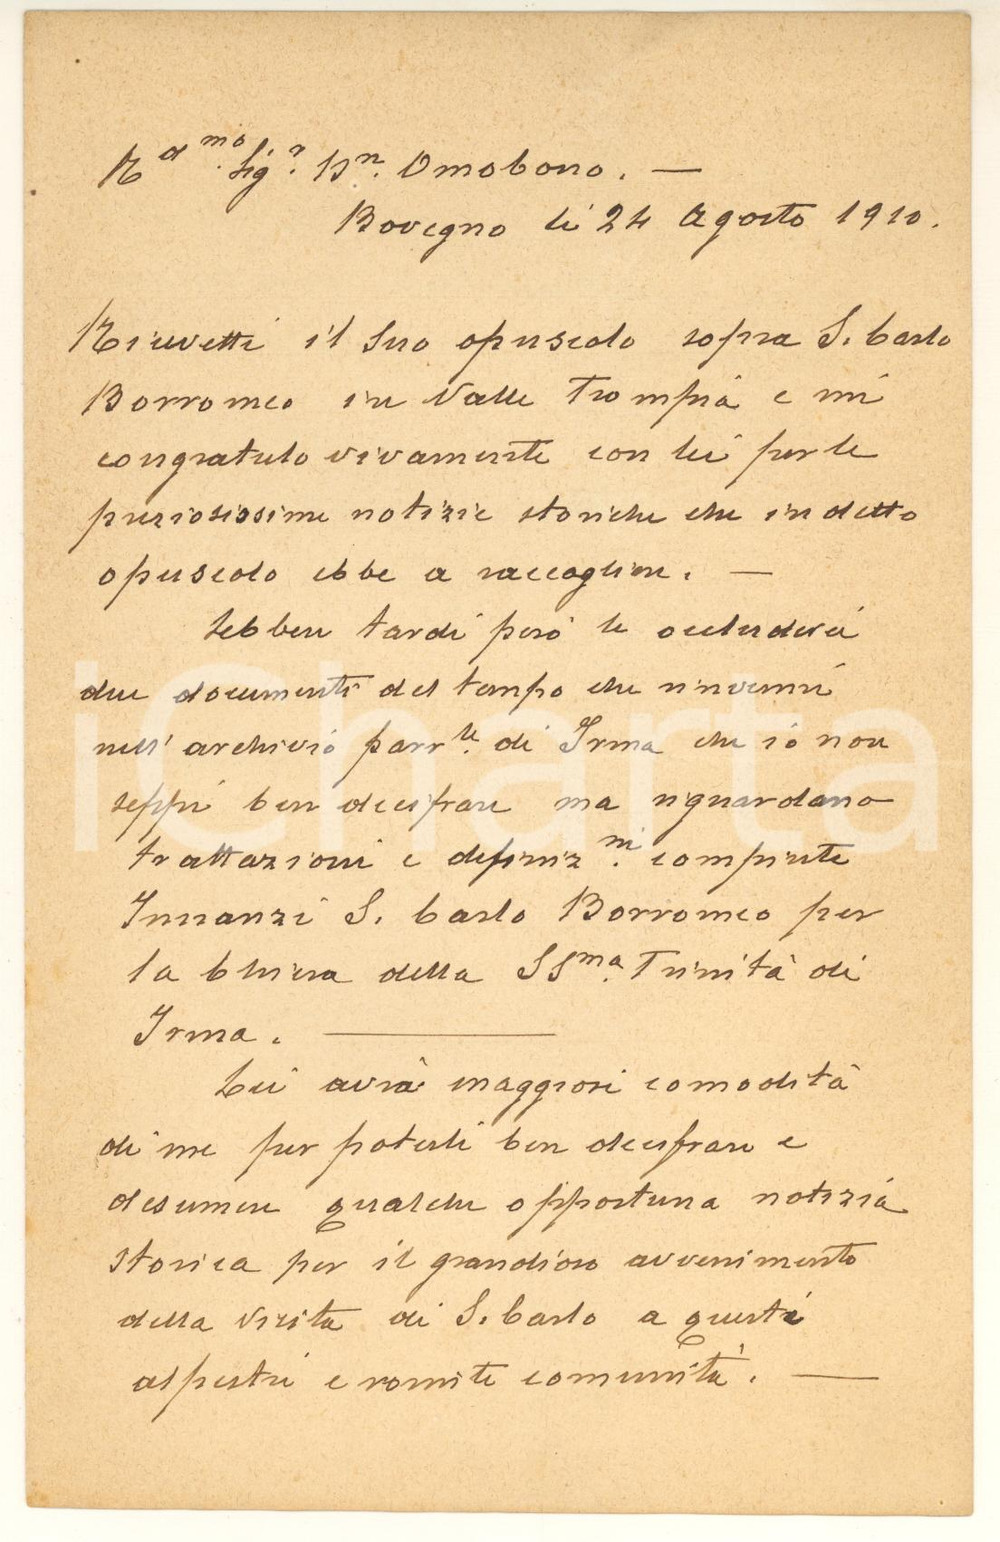 R.d.mo Sig.r D.n Omobono. —
Bovegno li 24 Agosto 1910.
Ricevetti il Suo opuscolo sopra S. Carlo
Borromeo in Valle Trompia e mi
congratulo vivamente con lei per le
preziosissime notizie storiche che in detto
opuscolo ebbe a raccogliere. —
Sebben tardi però le accluderei
due documenti del tempo che rinvenni
nell' archivio parr.le di Irma che io non
seppi ben decifrare ma riguardano
trattazioni e definiz.ni compiute
Innanzi S. Carlo Borromeo per
la Chiesa della SS.ma Trinità di
Irma. —
Lei avrà maggiori comodità
di me per poterli ben decifrare e
desumere qualche opportuna notizia
storica per il grandioso avvenimento
della visita di S. Carlo a queste
alpestri e romite comunità. —
iCharta